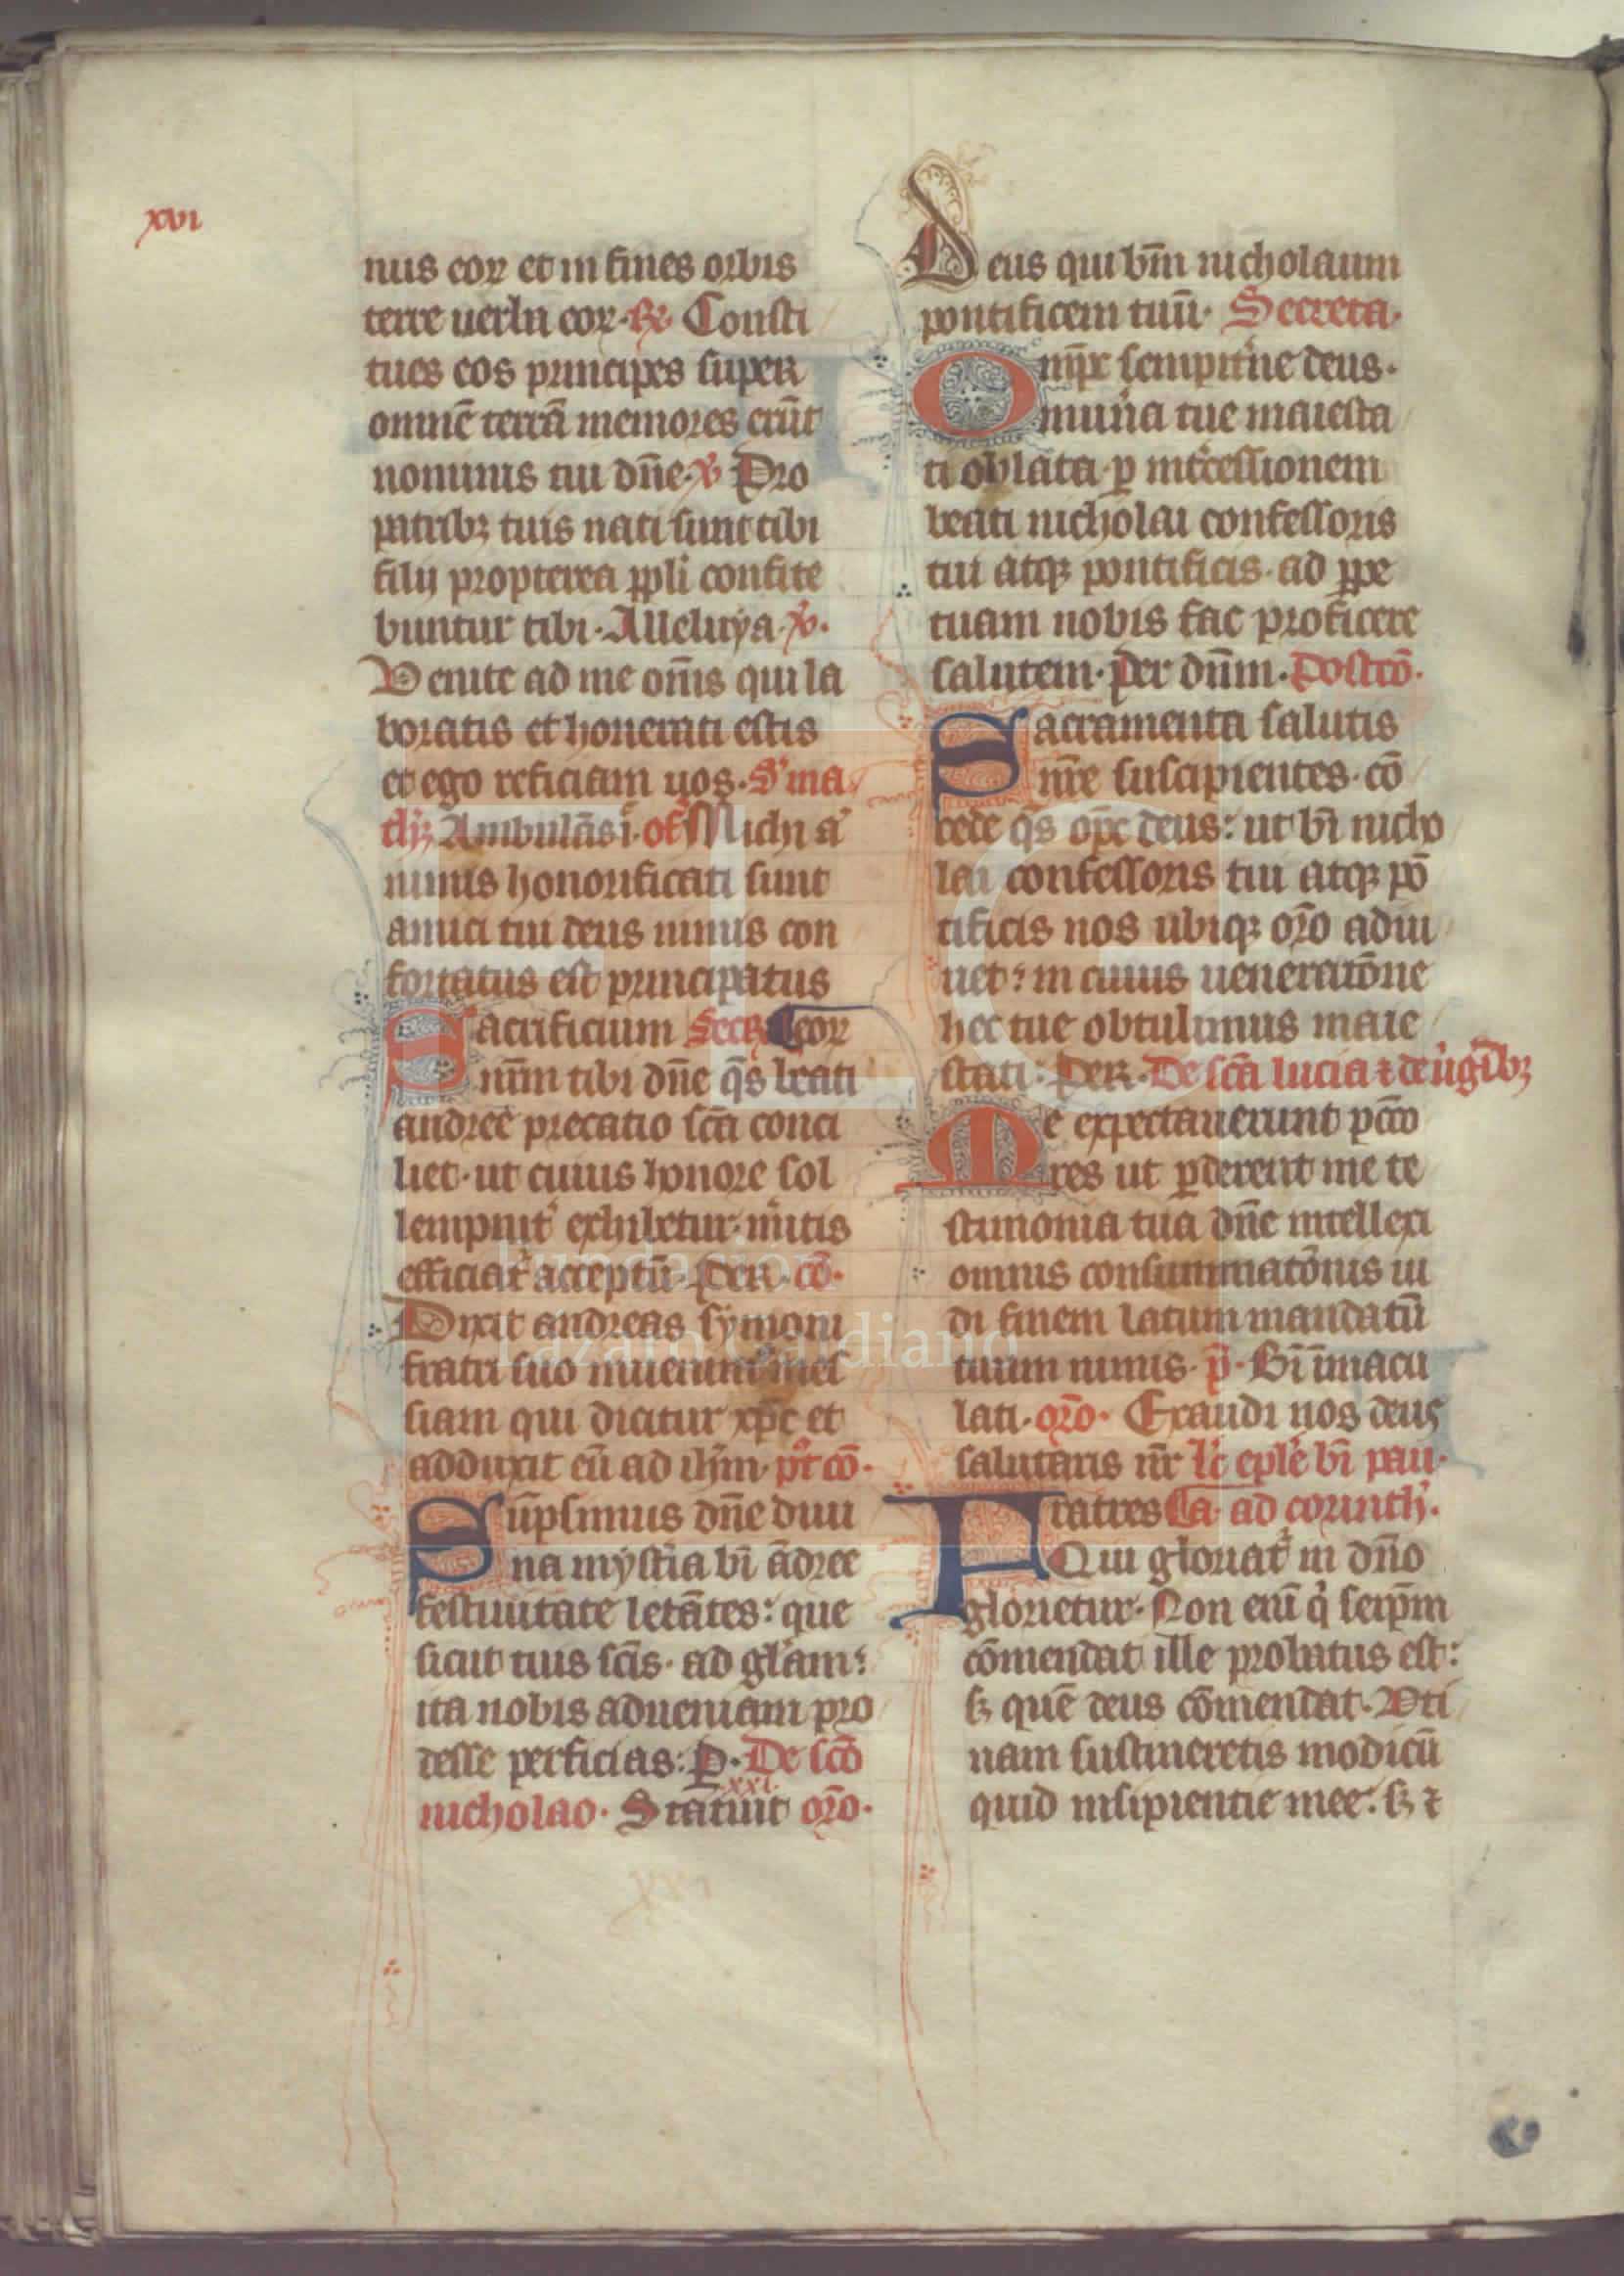 xvi
nus eoꝝ et in fines orbis
terre uerba eoꝝ. R̷. Consti
tues eos principes super
omnē terrā memores erūt
nominis tui dn̄e. V̷ Pro
patribꝫ tuis nati sunt tibi
filij propterea pp̄li confite
buntur tibi. Alleluya. V̷.
Uenite ad me om̄is qui la
boratis et honerati estis
et ego reficiam uos. S' ma
th'. Ambulās ī. of̄ Michi a
nimis honorificati sunt
amici tui deus nimis con
fortatus est principatus
Sacrificium Secr̄ eoꝝ
nr̄m tibi dn̄e q̄s beati
andree precatio sc̄a conci
liet. ut cuius honore sol
lempnit' exhibetur. m'itis
efficiat' acceptū. Per. cō.
Dixit andreas symoni
fratri suo inuenimus mes
siam qui dicitur xp̄c et
adduxit eū ad ih̄m. pt' cō.
Sūpsimus dn̄e diui
na mystia bī ādree
festiuitate letātes: que
sicut tuis sc̄is. ad gl'am:
ita nobis adueniam pro
desse perficias: P. De sc̄o
xxi.
nicholao. Statuit or̄o.
xxi
Deus qui bm̄ nicholaum
pontificem tuū. Secreta.
Omp̄r sempit'ne deus.
mun'a tue maiesta
ti oblata. ꝑ int'cessionem
beati nicholai confessoris
tui atqꝫ pontificis. ad ꝑpe
tuam nobis fac proficere
salutem. Per dn̄m. Postcō.
Sacramenta salutis
nr̄e suscipientes. cō
cede q̄s op̄c deus: ut bī nicho
lai confessoris tui atqꝫ pō
tificis nos ubiqꝫ or̄o adiu
uet: in cuius ueneratōne
hec tue obtulimus maie
stati: Per. De sc̄a lucia ⁊ de u'gībꝫ
Me expectauerunt pc̄co
res ut ꝑderent me te
stimonia tua dn̄e intellexi
omnis consummatōnis ui
di finem latum mandatū
tuum nimis. p̄. Bī īmacu
lati. or̄o. Exaudi nos deus
salutaris nr̄ Lc̄ epl'e bī pau
Fratres li. ad corinth'.
Qui gloriat' in dn̄o
glorietur. Non enī q' seip̄m
cōmendat ille probatus est:
sꝫ quē deus cōmendat. Uti
nam sustineretis modicū
quid insipientie mee: sꝫ ⁊
Fundación
Lázaro Galdiano